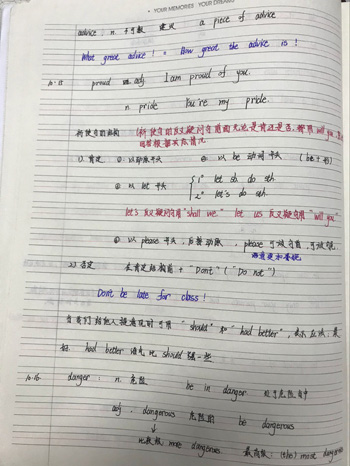 YOUR MEMORIES YOUR DREAMS
advice n. 不可数 建议 a piece of advice
What great advice ! = How great the advice is !
10.15 proud adj. I am proud of you.
n. pride You're my pride.
祈使句的结构 (祈使句的反义疑问句前面无论是肯定还是否, 都用 will you
1). 肯定 ①. 以动原开头 ②. 以 be 动词开头 (be + 形)
③ 以 let 开头 1° let sb. do sth.
2° let's do sth.
let's 反义疑问用 "shall we" let us 反义疑问用 "will you"
④ 以 please 开头, 后接动原, please 可放句首, 可放句尾
2) 否定 在肯定结构前 + "Don't" ("Do not")
Don't be late for class !
当我们给他人提意见时可用 "should" 和 "had better", 表示
had better 语气比 should 强一些.
10.16 danger : n. 危险 be in danger 处于危险当中
adj. dangerous 危险的 be dangerous
↓
比较级 more dangerous 最高级: (the) most dangerous